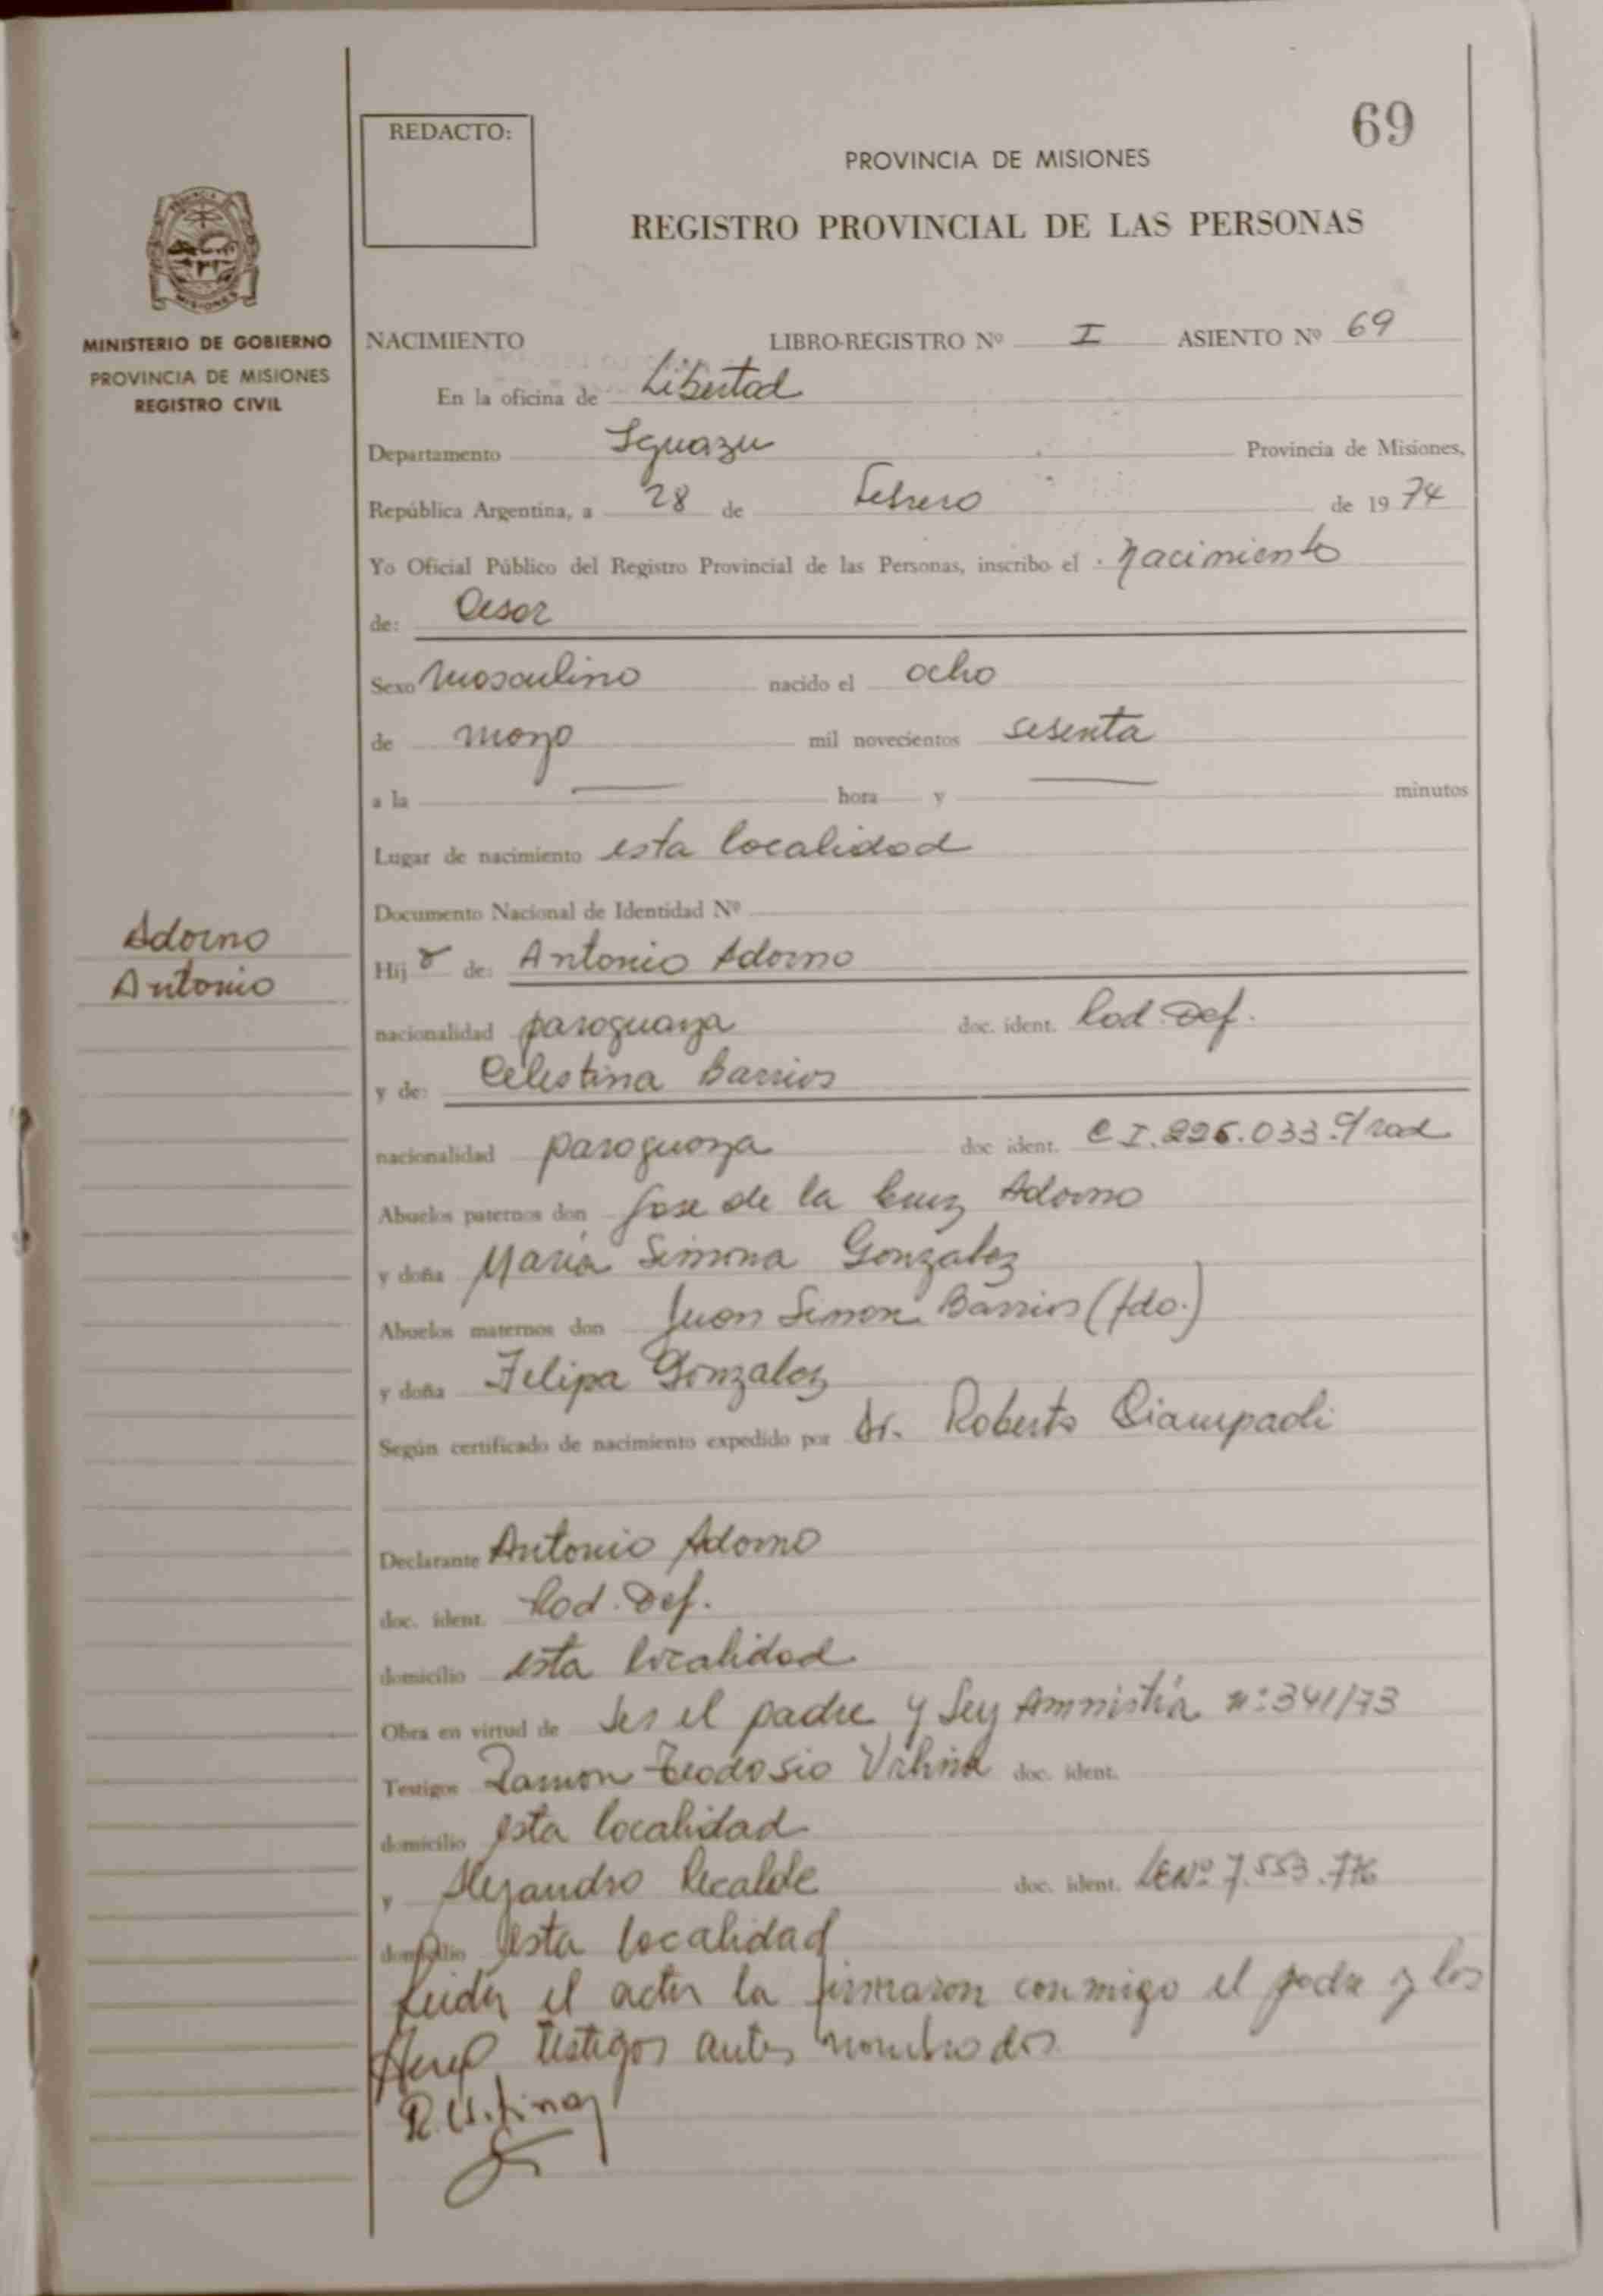 69
REDACTO:
PROVINCIA DE MISIONES
REGISTRO PROVINCIAL DE LAS PERSONAS
MISIONES
MINISTERIO DE GOBIERNO
PROVINCIA DE MISIONES
REGISTRO CIVIL
NACIMIENTO LIBRO-REGISTRO Nº I ASIENTO Nº 69
En la oficina de Libertad
Departamento Iguazu Provincia de Misiones,
República Argentina, a 28 de Febrero de 1974
Yo Oficial Público del Registro Provincial de las Personas, inscribo el nacimiento
de: Cesar
Sexo Masculino nacido el ocho
de mayo mil novecientos sesenta
a la — hora y — minutos
Lugar de nacimiento esta localidad
Documento Nacional de Identidad Nº
Adorno
Antonio
Hijo de: Antonio Adorno
nacionalidad paraguaya doc. ident. Rad. Def.
y de: Celestina Barrios
nacionalidad paraguaya doc ident. C.I. 226.033.
Abuelos paternos don Jose de la Cruz Adorno
y doña Maria Simona Gonzalez
Abuelos maternos don Juan Simon Barrios (fdo.)
y doña Felipa Gonzalez
Según certificado de nacimiento expedido por Dr. Roberto Ciampaoli
Declarante Antonio Adorno
doc. ident. Rad. Def.
domicilio esta localidad
Obra en virtud de ser el padre y Ley Amnistía nº 341/73
Testigos Ramon Teodosio doc. ident.
domicilio esta localidad
y Alejandro Recalde doc. ident. LE Nº 7.553.776
domicilio esta localidad
Leida el acta la firmaron conmigo el padre y los
testigos antes nombrados